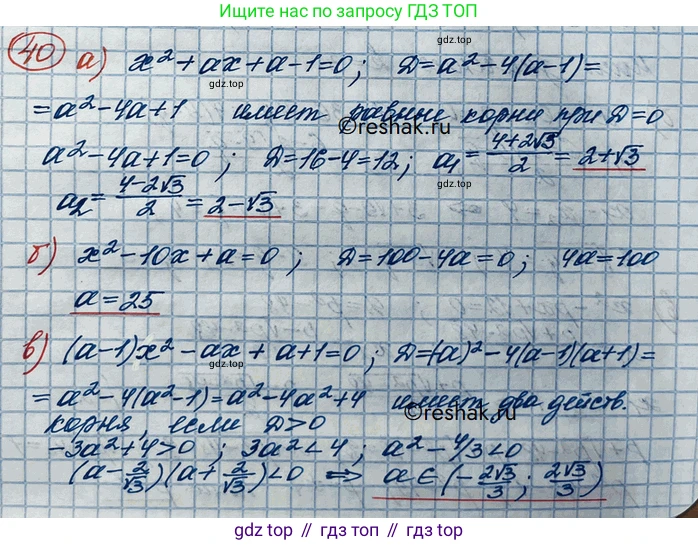 гдз топ по запросу ГДЗ ТОП
40 а) x² + ax + a - 1 = 0 ; D = a² - 4(a-1) =
gdz.top
= a² - 4a + 1 имеет равные корни при D = 0
©reshak.ru
a² - 4a + 1 = 0 ; D = 16 - 4 = 12 ; a₁ = (4+2√3)/2 = 2+√3
gdz.top
a₂ = (4-2√3)/2 = 2-√3
б) x² - 10x + a = 0 ; D = 100 - 4a = 0 ; 4a = 100
gdz.top
a = 25
в) (a-1)x² - ax + a + 1 = 0 ; D = (-a)² - 4(a-1)(a+1) =
gdz.top
= a² - 4(a²-1) = a² - 4a² + 4 имеет два действ.
корня, если D > 0
©reshak.ru
-3a² + 4 > 0 ; 3a² < 4 ; a² - 4/3 < 0
gdz.top
(a - 2/√3)(a + 2/√3) < 0 ⇔ a ∈ (-2√3/3 ; 2√3/3)
gdz top // гдз топ // gdz.top